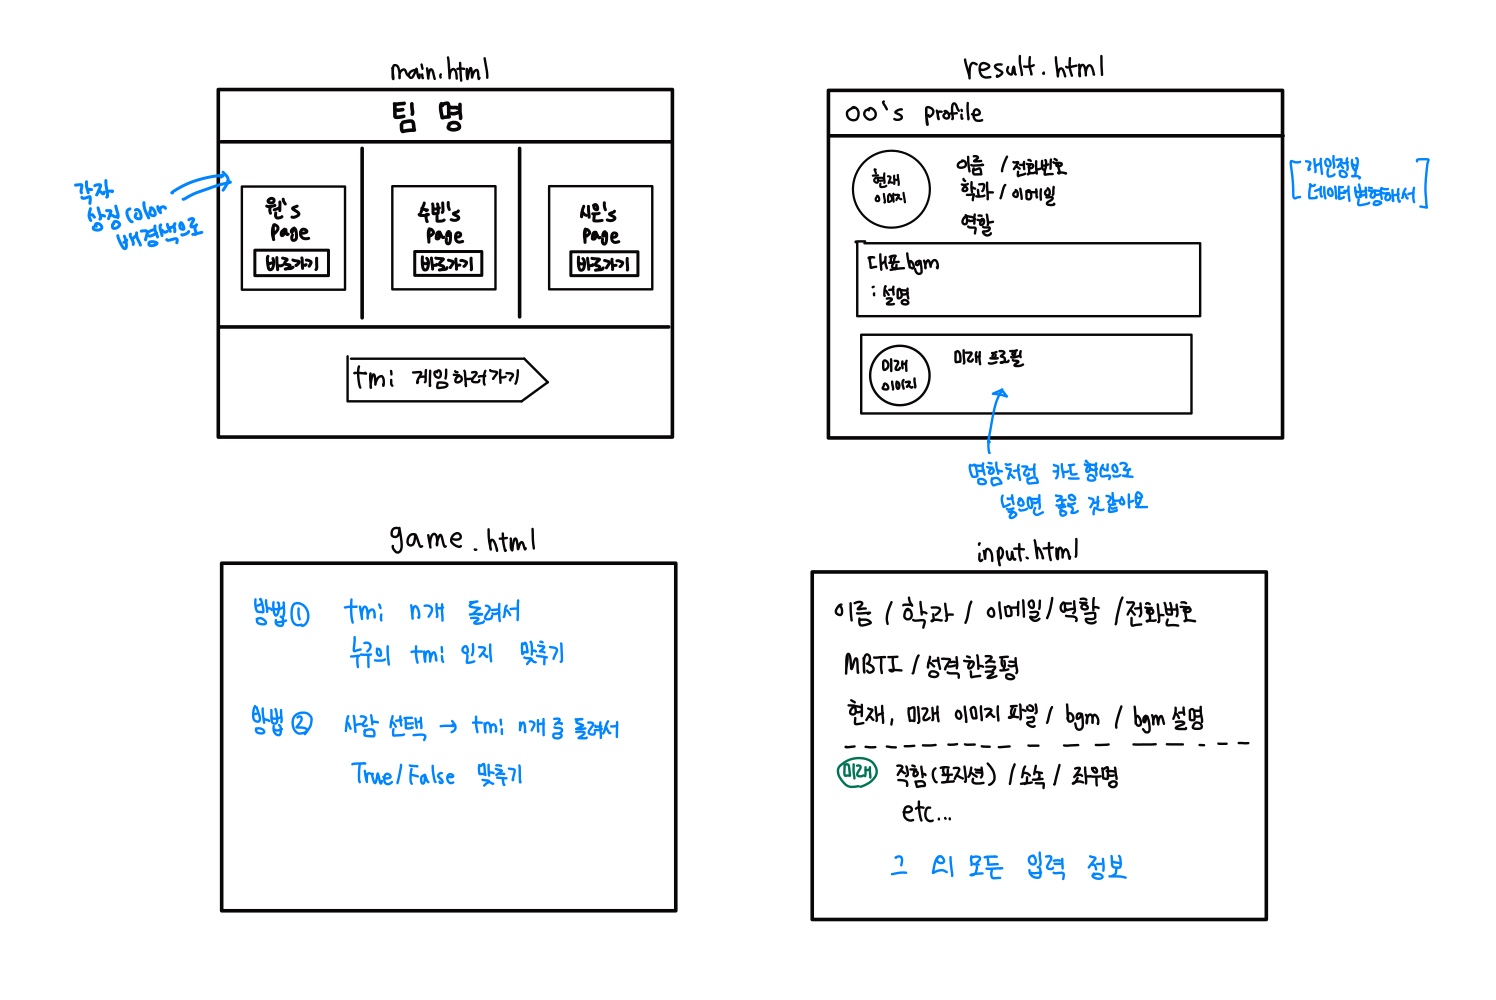 main.html
팀 명
각자
상징 color
배경색으로
원's
page
바로가기
수빈's
page
바로가기
시은's
page
바로가기
tmi 게임하러가기
result.html
OO's profile
현재
이미지
이름 / 전화번호
학과 / 이메일
역할
개인정보
데이터 변형해서
대표 bgm
: 설명
미래
이미지
미래 프로필
명함처럼 카드 형식으로
넣으면 좋을 것 같아요
game.html
방법① tmi n개 돌려서
누구의 tmi 인지 맞추기
방법② 사람 선택 → tmi n개 중 돌려서
True/False 맞추기
input.html
이름 / 학과 / 이메일 / 역할 / 전화번호
MBTI / 성격 한줄평
현재, 미래 이미지 파일 / bgm / bgm 설명
미래 직함(포지션) / 소속 / 좌우명
etc...
그 외 모든 입력 정보